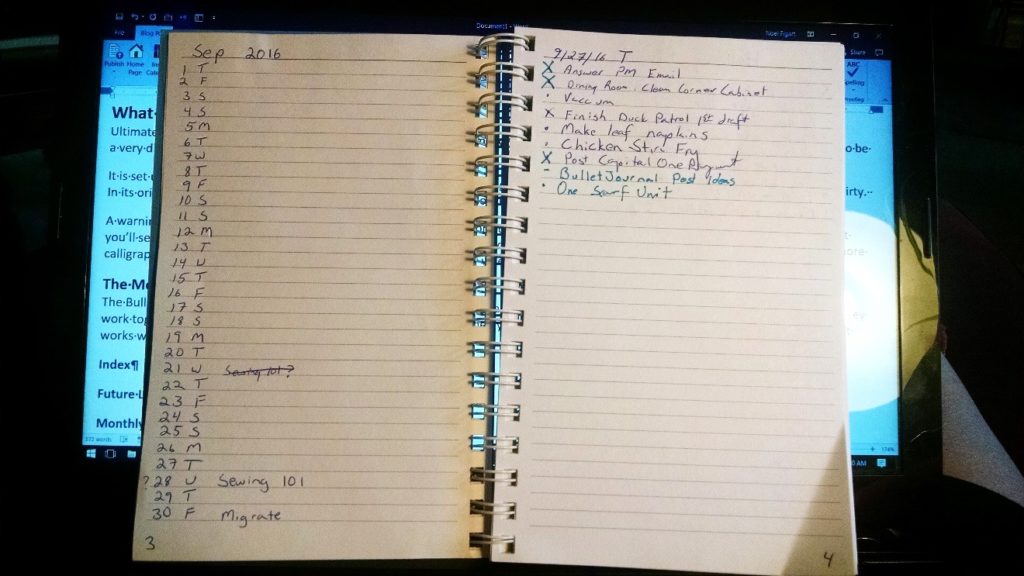 Document1 - Word
Noel Figart
File
Blog Po
Share
Publish Home
Page
Cate
ABC
Spelling
Proofing
What
Ultimate
a·very·d
to·be·
It·is·set·
In·its·ori
irty.··
A·warnin
you'll·se
calligrap
more·
The·Me
The·Bull
work·tog
works·w
ey·
Index¶
Future·L
Monthly
373 words
174%
0 AM
Sep 2016
1 T
2 F
3 S
4 S
5 M
6 T
7 W
8 T
9 F
10 S
11 S
12 M
13 T
14 W
15 T
16 F
17 S
18 S
19 M
20 T
21 W Sewing 101?
22 T
23 F
24 S
25 S
26 M
27 T
? 28 W Sewing 101
29 T
30 F Migrate
3
9/27/16 T
X Answer PM Email
X Dining Room: Clean Corner Cabinet
· Vacuum
X Finish Duck Patrol 1st draft
• Make leaf napkins
· Chicken Stir Fry
X Post Capital One Payment
- Bullet Journal Post Ideas
· One Scarf Unit
4